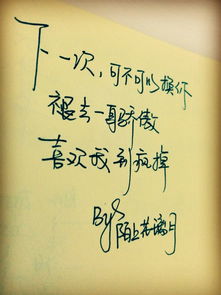 下一次，可不可以换你
褪去一身骄傲
喜欢我到疯掉
By:陌上苏漓月